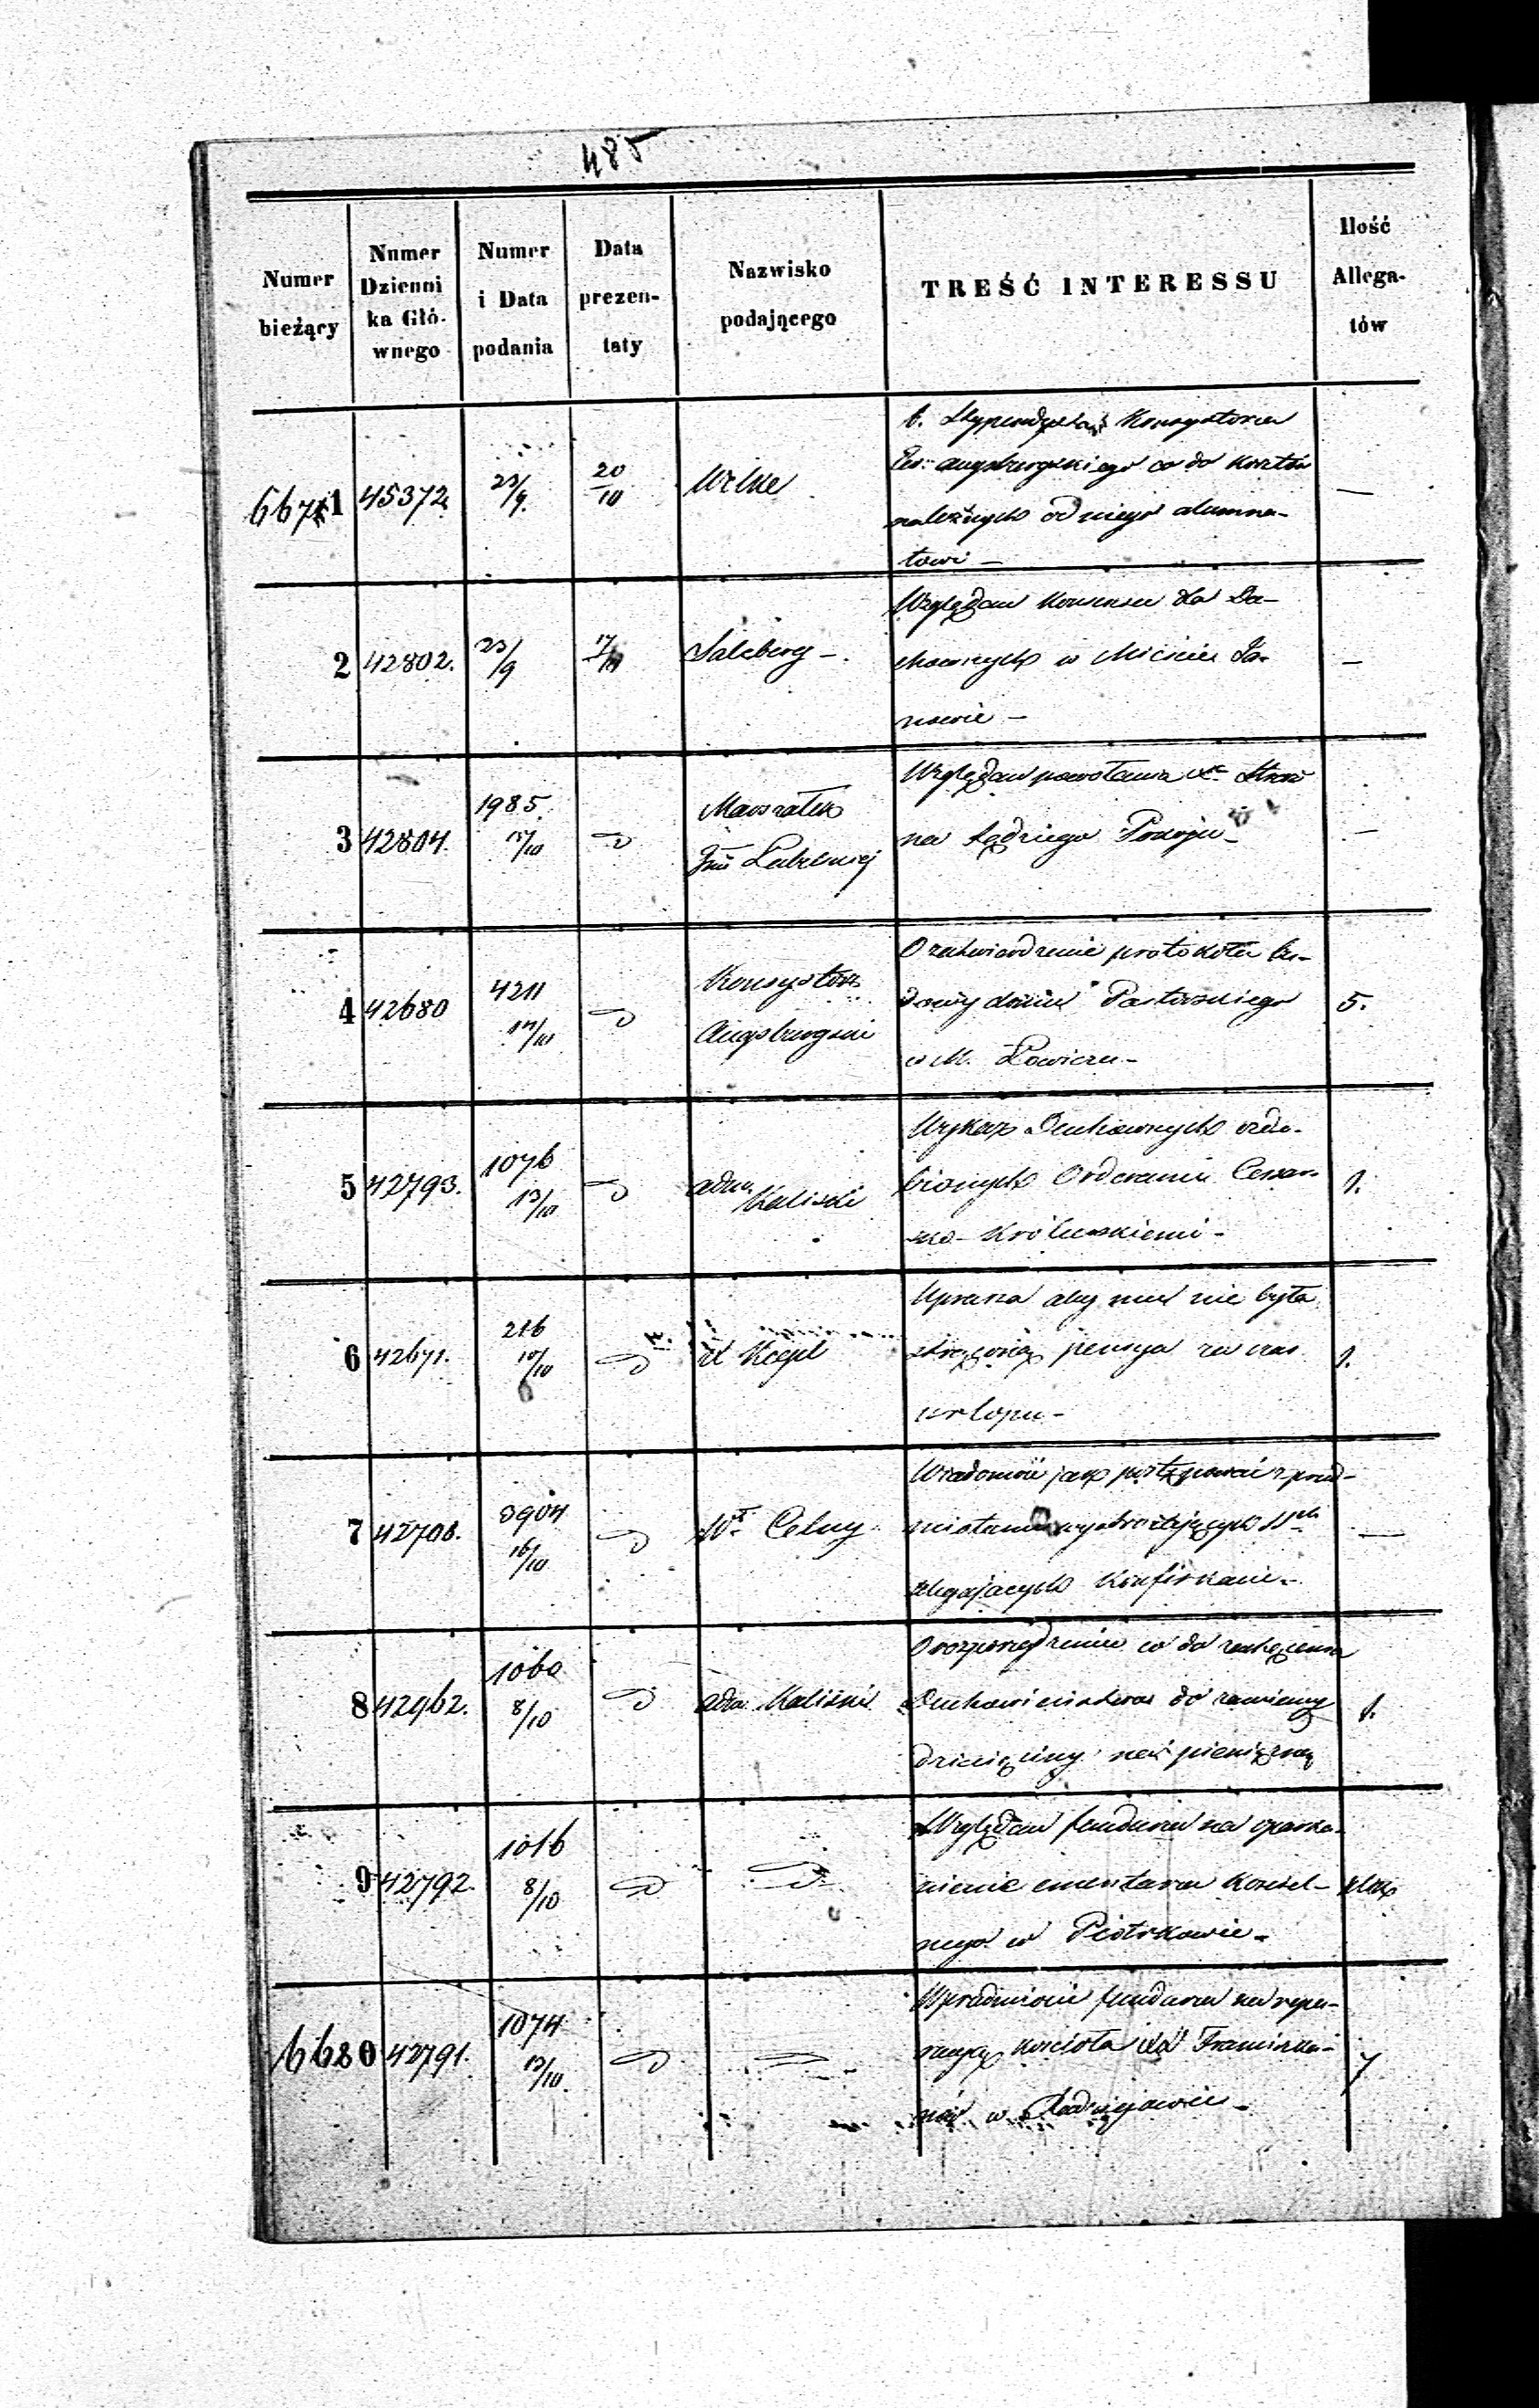 485
Numer bieżący
Numer Dzienni ka Głó- wnego
Numer i Data podania
Data prezen- taty
Nazwisko podającego
TREŚĆ INTERESSU
Ilość Allega- tów
6671 45372 23/9 20/10 —
b. Stypendysta Konsystorza
Ew: augsburgskiego co do kosztów
należnych od niego alumna-
towi —
2 42802. 23/9 17/10 Salzberg — —
Względem konsensu dla Du-
chownych w Mieście Ja-
nowie —
3 42804. 1985. 15/10 Marszałek —
Gnii Lubelskiej
Względem powołania
na Sędziego Pokoju —
4 42680 4211 14/10 Konsystorz 5.
Augsburgski
O zatwierdzenie protokołu bu-
dowy domu Pastorskiego
w M. Łowiczu —
5 42793. 1076 13/10 adm. Kaliski 1.
Wykaz Duchownych ozdo-
bionych Orderami Cesar-
sko-Królewskiemi —
6 42671. 216 10/10 1.
Uprasza aby mu nie była
strąconą pensya za czas
urlopu —
7 42708. 3904 16/10 Wł. Celny —
jak postępować z przed-
miotami
ulegających konfiskacie —
8 42962. 1060 8/10 adm. Kaliski 1.
O rozporządzenie co do zachęcenia
Duchowieństwa do zamiany
dziesięciny na pieniężną
9 42792. 1016 8/10
Względem funduszu na oparka-
nienie cmentarza Kościel-
nego w Piotrkowie —
6680 42791. 1074 13/10 7
funduszu na repa-
racyą kościoła Franciszka-
nów w Radziejowie —